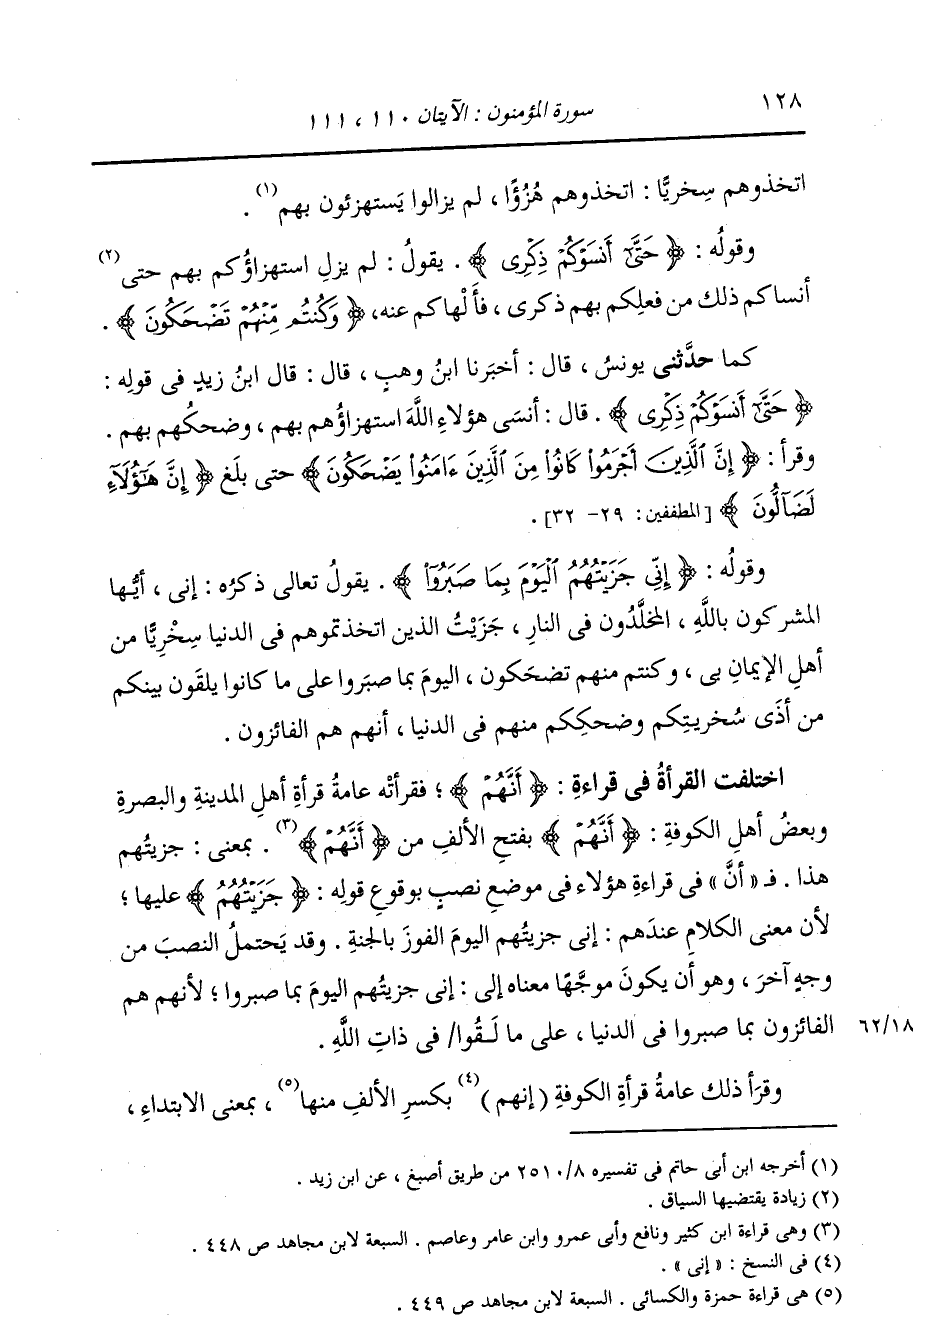 ١٢٨
سورة المؤمنون : الآيتان ١١٠ ، ١١١
اتخذوهم سِخريًّا : اتخذوهم هُزُؤًا ، لم يزالوا يَستهزئون بهم(١) .
وقولُه : ﴿ حَتَّىٰٓ أَنسَوْكُمْ ذِكْرِى ﴾ . يقولُ : لم يزلِ استهزاؤُكم بهم حتى(٢)
أنساكم ذلك من فعلِكم بهم ذكرى ، فأَلْهاكم عنه، ﴿ وَكُنتُم مِّنْهُمْ تَضْحَكُونَ ﴾ .
كما حدَّثنى يونسُ ، قال : أخبَرنا ابنُ وهبٍ ، قال : قال ابنُ زيدٍ فى قولِه :
﴿ حَتَّىٰٓ أَنسَوْكُمْ ذِكْرِى ﴾ . قال : أنسَى هؤلاءِ اللَّهَ استهزاؤُهم بهم ، وضحكُهم بهم .
وقرأ : ﴿ إِنَّ ٱلَّذِينَ أَجْرَمُوا۟ كَانُوا۟ مِنَ ٱلَّذِينَ ءَامَنُوا۟ يَضْحَكُونَ ﴾ حتى بلَغ ﴿ إِنَّ هَٰٓؤُلَآءِ
لَضَآلُّونَ ﴾ [المطففين: ٢٩- ٣٢] .
وقولُه : ﴿ إِنِّى جَزَيْتُهُمُ ٱلْيَوْمَ بِمَا صَبَرُوٓا۟ ﴾ . يقولُ تعالى ذكرُه : إنى ، أيُّها
المشركون باللَّهِ ، المخلَّدُون فى النارِ ، جَزَيْتُ الذين اتخذتموهم فى الدنيا سِخْرِيًّا من
أهلِ الإيمانِ بى ، وكنتم منهم تضحَكون ، اليومَ بما صبَروا على ما كانوا يلقَون بينكم
من أذَى سُخريتِكم وضحكِكم منهم فى الدنيا ، أنهم هم الفائزون .
اختلفت القرأةُ فى قراءةِ : ﴿ أَنَّهُمْ ﴾ ؛ فقرأتْه عامةُ قرأةِ أهلِ المدينةِ والبصرةِ
وبعضُ أهلِ الكوفةِ : ﴿ أَنَّهُمْ ﴾ بفتحِ الألفِ من ﴿ أَنَّهُمْ ﴾(٣) . بمعنى : جزيتُهم
هذا . فـ « أنَّ » فى قراءةِ هؤلاء فى موضعِ نصبٍ بوقوعِ قولِه : ﴿ جَزَيْتُهُمُ ﴾ عليها ؛
لأن معنى الكلامِ عندَهم : إنى جزيتُهم اليومَ الفوزَ بالجنةِ . وقد يَحتملُ النصبَ من
وجهٍ آخرَ ، وهو أن يكونَ موجَّهًا معناه إلى : إنى جزيتُهم اليومَ بما صبروا ؛ لأنهم هم
الفائزون بما صبروا فى الدنيا ، على ما لَـقُوا/ فى ذاتِ اللَّهِ .
٦٢/١٨
وقرَأ ذلك عامةُ قرأةِ الكوفةِ (إنهم)(٤) بكسرِ الألفِ منها(٥) ، بمعنى الابتداءِ ،
(١) أخرجه ابن أبى حاتم فى تفسيره ٢٥١٠/٨ من طريق أصبغ ، عن ابن زيد .
(٢) زيادة يقتضيها السياق .
(٣) وهى قراءة ابن كثير ونافع وأبى عمرو وابن عامر وعاصم . السبعة لابن مجاهد ص ٤٤٨ .
(٤) فى النسخ : « إنى » .
(٥) هى قراءة حمزة والكسائى . السبعة لابن مجاهد ص ٤٤٩ .